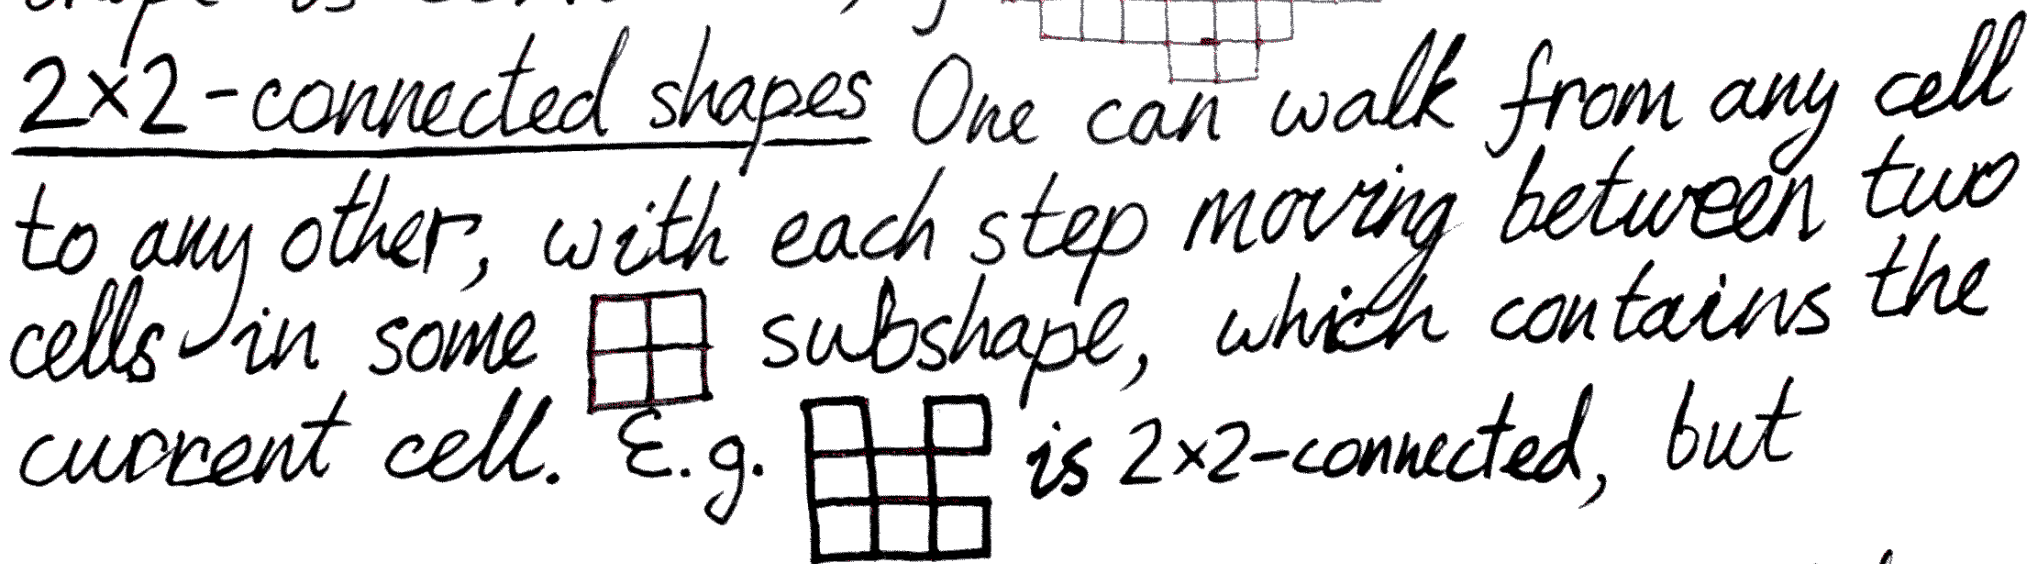 2×2-connected shapes One can walk from any cell
to any other, with each step moving between two
cells in some subshape, which contains the
current cell. E.g. is 2×2-connected, but